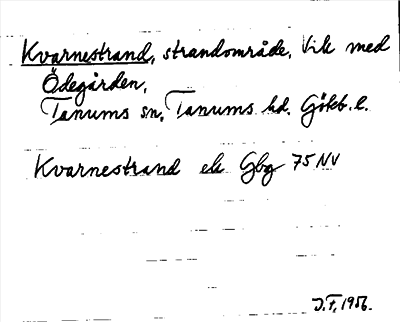 Kvarnestrand, strandområde, Vik med
Ödegården,
Tanums sn, Tanums hd. Götb. l.
Kvarnestrand ek Gbg 75 NV
J.F, 1956.